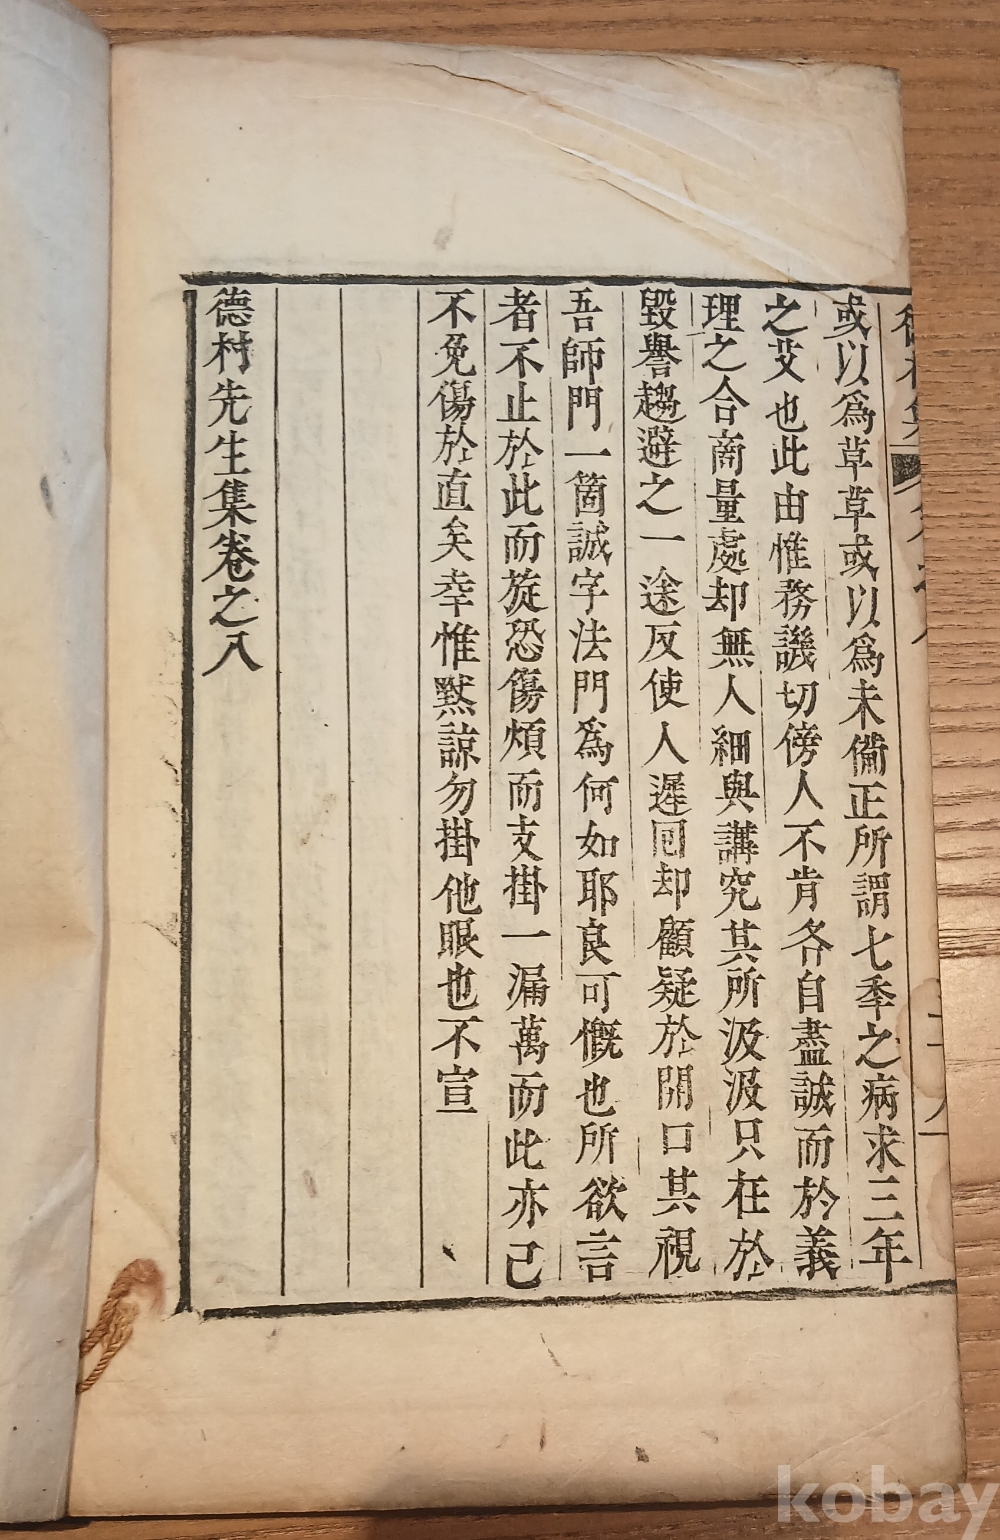 或以爲草草或以爲未備正所謂七秊之病求三年
之艾也此由惟務譏切傍人不肯各自盡誠而於義
理之合商量處却無人細與講究其所汲汲只在於
毀譽趨避之一途反使人遲回却顧疑於開口其視
吾師門一箇誠字法門爲何如耶良可慨也所欲言
者不止於此而旋恐傷煩而支掛一漏萬而此亦已
不免傷於直矣幸惟黙諒勿掛他眼也不宣
德村先生集卷之八
kobay